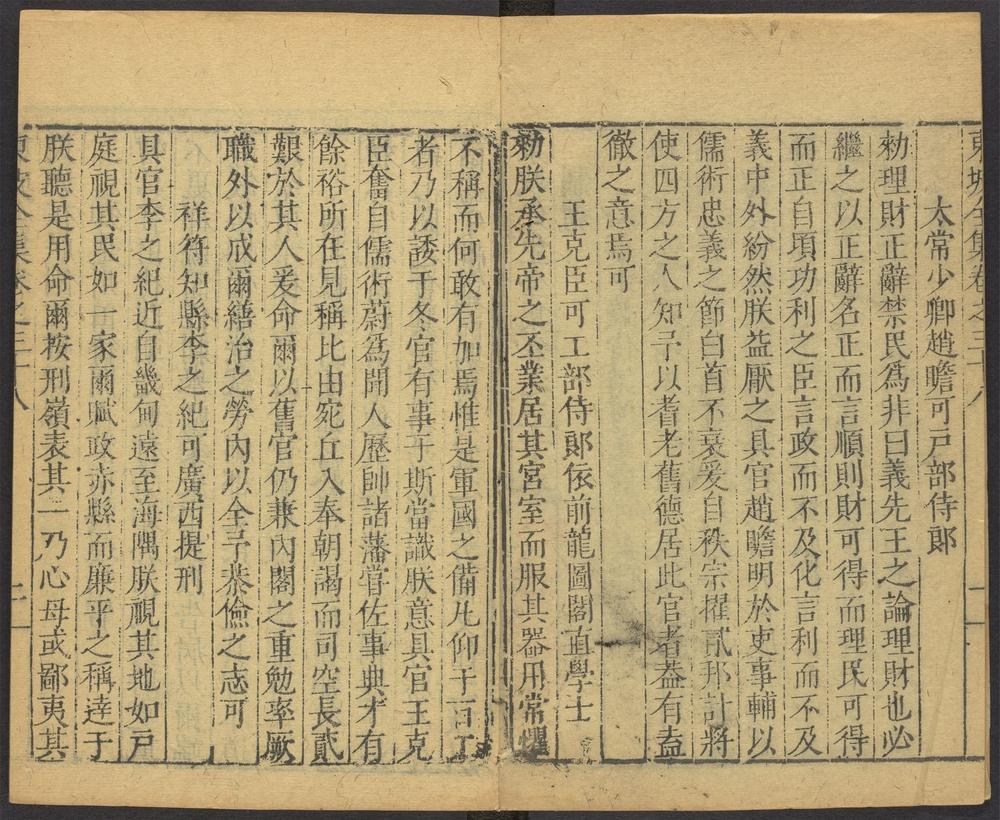 東坡全集卷之三十八
太常少卿趙瞻可戸部侍郎
勑理財正辭禁民爲非曰義先王之論理財也必
繼之以正辭名正而言順則財可得而理民可得
而正自頃功利之臣言政而不及化言利而不及
義中外紛然朕益厭之具官趙瞻明於吏事輔以
儒術忠義之節白首不衰爰自秩宗擢貳邦計將
使四方之人知予以耆老舊德居此官者葢有盍
徹之意焉可
王克臣可工部侍郞依前龍圖閣直學士
勑朕承先帝之丕業居其宮室而服其器用常懼
不稱而何敢有加焉惟是軍國之備凡仰于百工
者乃以諉于冬官有事于斯當識朕意具官王克
臣奮自儒術蔚爲聞人歷帥諸藩甞佐事典才有
餘裕所在見稱比由宛丘入奉朝謁而司空長貳
艱於其人爰命爾以舊官仍兼內閣之重勉率厥
職外以成爾繕治之勞內以全予恭儉之志可
祥符知縣李之紀可廣西提刑
具官李之紀近自畿甸遠至海隅朕視其地如戸
庭視其民如一家爾賦政赤縣而廉平之稱達于
朕聽是用命爾按刑嶺表其一乃心毋或鄙夷其
東坡全集卷之三十八